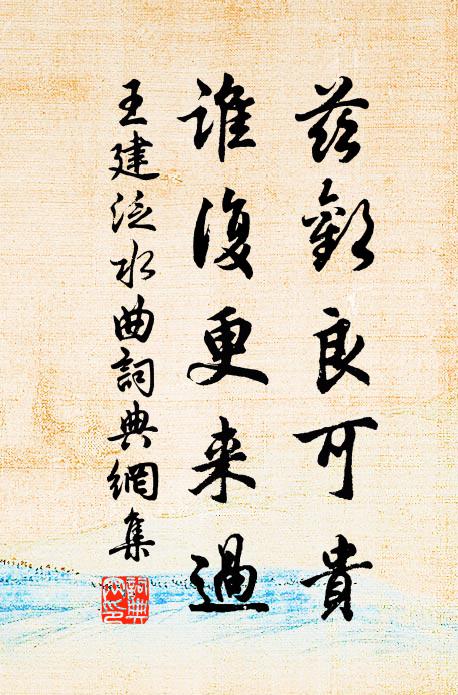 茲歡良可貴
誰復更来過
王建泛水曲詞典網集